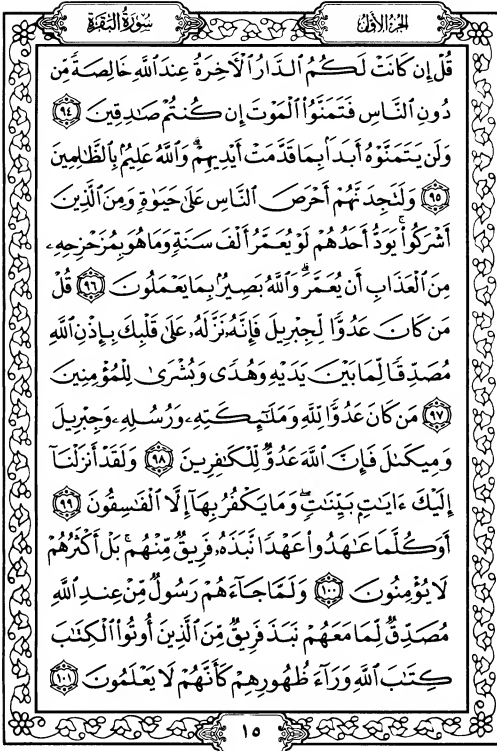 سُورَةُ البَقَرَةِ
الجُزءُ الأوَّلُ
قُلْ إِن كَانَتْ لَكُمُ الدَّارُ الْأَخِرَةُ عِندَ اللَّهِ خَالِصَةً مِّن
دُونِ النَّاسِ فَتَمَنَّوُا الْمَوْتَ إِن كُنتُمْ صَادِقِينَ ٩٤
وَلَن يَتَمَنَّوْهُ أَبَدًا بِمَا قَدَّمَتْ أَيْدِيهِمْ ۗ وَاللَّهُ عَلِيمٌ بِالظَّالِمِينَ
٩٥ وَلَتَجِدَنَّهُمْ أَحْرَصَ النَّاسِ عَلَىٰ حَيَوٰةٍ وَمِنَ الَّذِينَ
أَشْرَكُوا ۚ يَوَدُّ أَحَدُهُمْ لَوْ يُعَمَّرُ أَلْفَ سَنَةٍ وَمَا هُوَ بِمُزَحْزِحِهِۦ
مِنَ الْعَذَابِ أَن يُعَمَّرَ ۗ وَاللَّهُ بَصِيرٌ بِمَا يَعْمَلُونَ ٩٦ قُلْ
مَن كَانَ عَدُوًّا لِّجِبْرِيلَ فَإِنَّهُۥ نَزَّلَهُۥ عَلَىٰ قَلْبِكَ بِإِذْنِ اللَّهِ
مُصَدِّقًا لِّمَا بَيْنَ يَدَيْهِ وَهُدًى وَبُشْرَىٰ لِلْمُؤْمِنِينَ
٩٧ مَن كَانَ عَدُوًّا لِّلَّهِ وَمَلَٰٓئِكَتِهِۦ وَرُسُلِهِۦ وَجِبْرِيلَ
وَمِيكَىٰلَ فَإِنَّ اللَّهَ عَدُوٌّ لِّلْكَٰفِرِينَ ٩٨ وَلَقَدْ أَنزَلْنَآ
إِلَيْكَ ءَايَٰتٍ بَيِّنَٰتٍ ۖ وَمَا يَكْفُرُ بِهَآ إِلَّا الْفَٰسِقُونَ ٩٩
أَوَكُلَّمَا عَٰهَدُوا عَهْدًا نَّبَذَهُۥ فَرِيقٌ مِّنْهُم ۚ بَلْ أَكْثَرُهُمْ
لَا يُؤْمِنُونَ ١٠٠ وَلَمَّا جَآءَهُمْ رَسُولٌ مِّنْ عِندِ اللَّهِ
مُصَدِّقٌ لِّمَا مَعَهُمْ نَبَذَ فَرِيقٌ مِّنَ الَّذِينَ أُوتُوا الْكِتَٰبَ
كِتَٰبَ اللَّهِ وَرَآءَ ظُهُورِهِمْ كَأَنَّهُمْ لَا يَعْلَمُونَ ١٠١
١٥